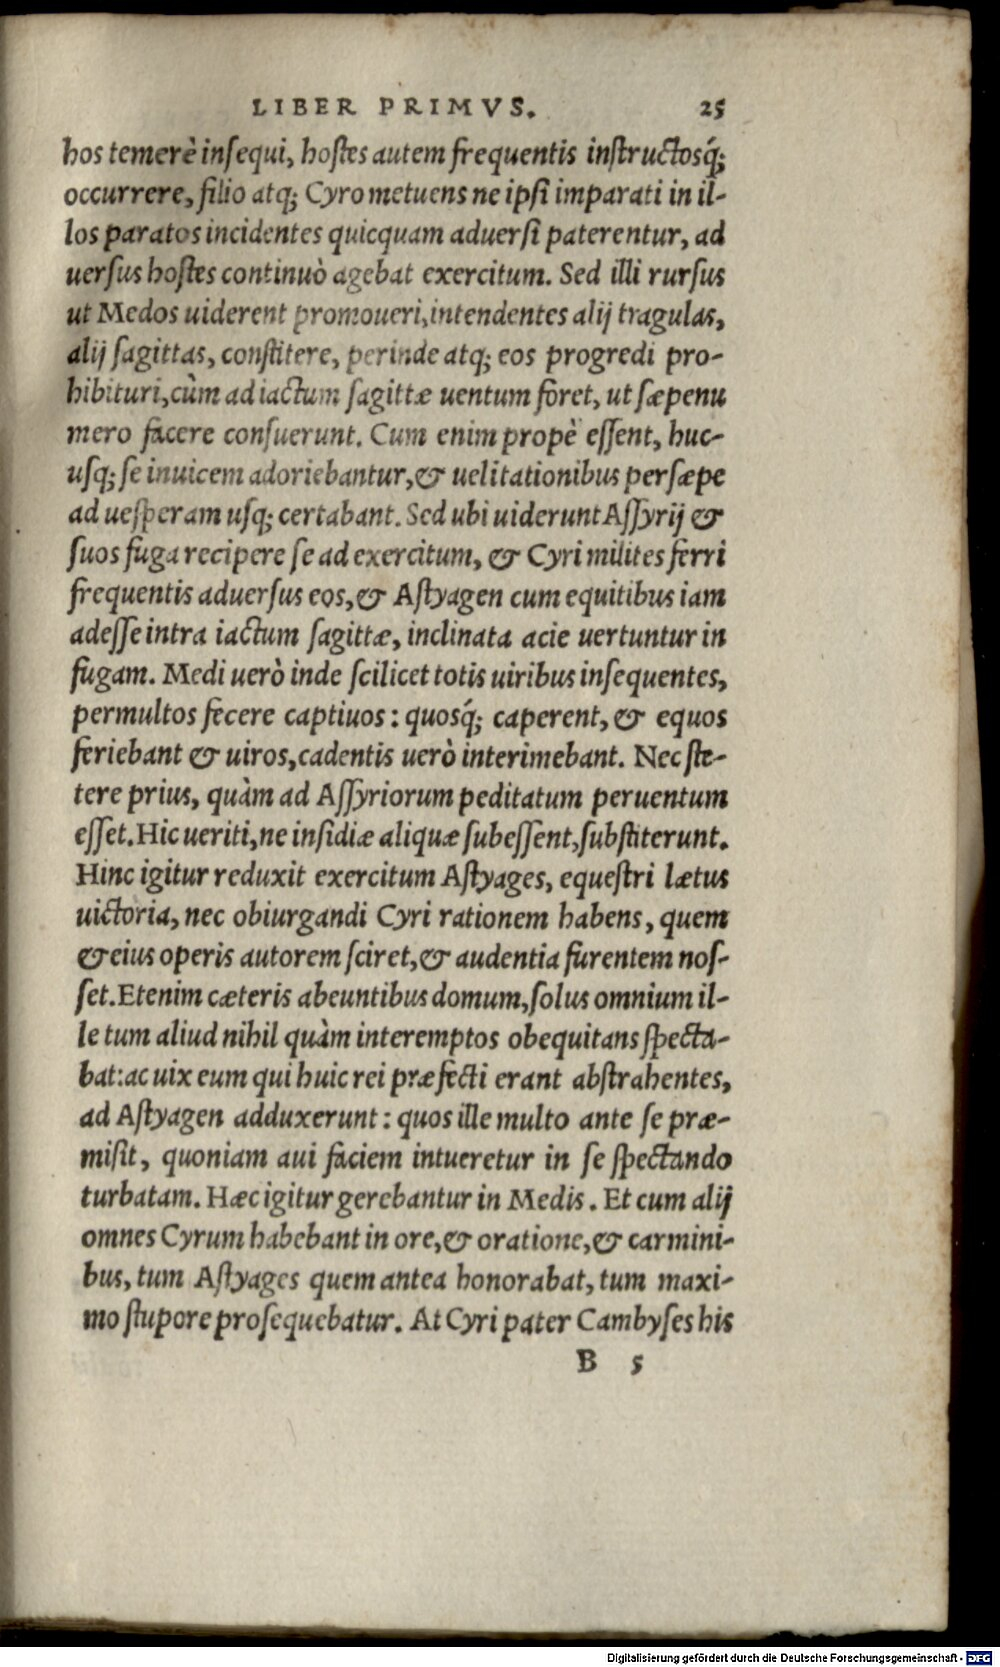 LIBER PRIMVS. 25
hos temerè insequi, hostes autem frequentis instructosq́;
occurrere, filio atq; Cyro metuens ne ipsi imparati in il-
los paratos incidentes quicquam aduersi paterentur, ad
uersus hostes continuò agebat exercitum. Sed illi rursus
ut Medos uiderent promoueri, intendentes alij tragulas,
alij sagittas, constitere, perinde atq; eos progredi pro-
hibituri, cùm ad iactum sagittæ uentum foret, ut sæpenu
mero facere consuerunt. Cum enim propè essent, huc-
usq; se inuicem adoriebantur, & uelitationibus persæpe
ad uesperam usq; certabant. Sed ubi uiderunt Assyrij &
suos fuga recipere se ad exercitum, & Cyri milites ferri
frequentis aduersus eos, & Astyagen cum equitibus iam
adesse intra iactum sagittæ, inclinata acie uertuntur in
fugam. Medi uerò inde scilicet totis uiribus insequentes,
permultos fecere captiuos: quosq́; caperent, & equos
feriebant & uiros, cadentis uerò interimebant. Nec ste-
tere prius, quàm ad Assyriorum peditatum peruentum
esset. Hic ueriti, ne insidiæ aliquæ subessent, substiterunt.
Hinc igitur reduxit exercitum Astyages, equestri lætus
uictoria, nec obiurgandi Cyri rationem habens, quem
& eius operis autorem sciret, & audentia furentem nos-
set. Etenim cæteris abeuntibus domum, solus omnium il-
le tum aliud nihil quàm interemptos obequitans specta-
bat: ac uix eum qui huic rei præfecti erant abstrahentes,
ad Astyagen adduxerunt: quos ille multo ante se præ-
misit, quoniam aui faciem intueretur in se spectando
turbatam. Hæc igitur gerebantur in Medis. Et cum alij
omnes Cyrum habebant in ore, & oratione, & carmini-
bus, tum Astyages quem antea honorabat, tum maxi-
mo stupore prosequebatur. At Cyri pater Cambyses his
B 5
Digitalisierung gefördert durch die Deutsche Forschungsgemeinschaft - DFG